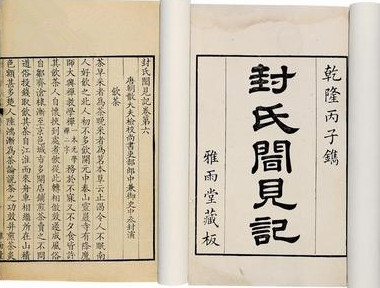 乾隆丙子鐫
封氏聞見記
雅雨堂藏板
封氏聞見記卷第六
唐朝散大夫檢校尚書吏部郎中兼御史中丞封演
飲茶
茶早采者為茶晚采者為茗本草云止渴令人不眠南
人好飲之北人初不多飲開元中泰山靈巖寺有降魔
師大興禪教學禪務於不寐又不夕食皆許
其飲茶人自懷挾到處煮飲從此轉相倣效遂成風俗
自鄒齊滄棣漸至京邑城市多開店鋪煎茶賣之不問
道俗投錢取飲其茶自江淮而來舟車相繼所在山積
色額甚多楚人陸鴻漸為茶論說茶之功效并煎茶炙